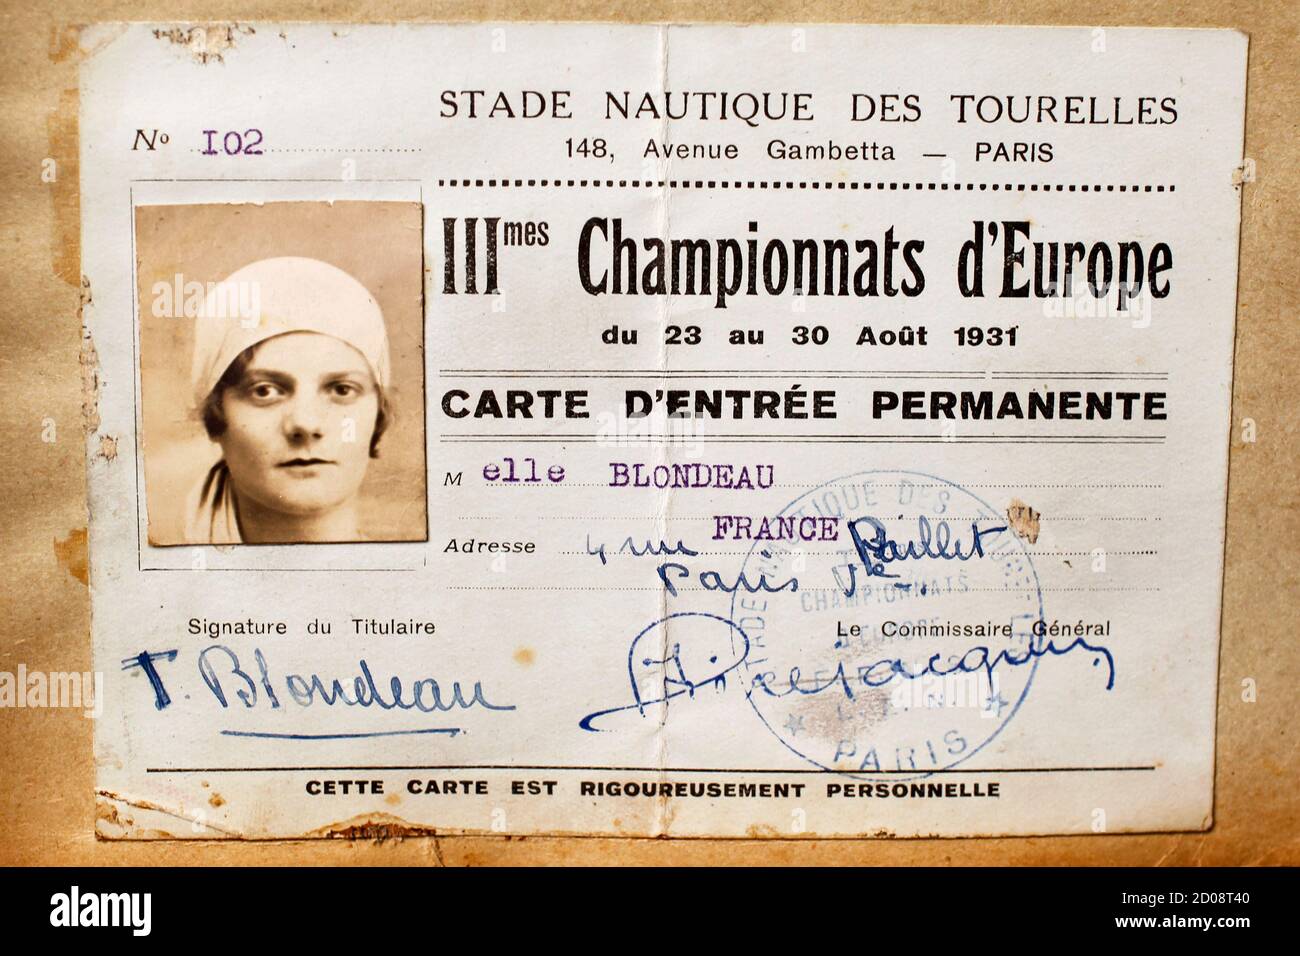 STADE NAUTIQUE DES TOURELLES
148, Avenue Gambetta — PARIS
Nº 102
IIImes Championnats d'Europe
du 23 au 30 Août 1931
CARTE D'ENTRÉE PERMANENTE
M elle BLONDEAU
FRANCE
Adresse 4 rue Paillet
Paris Ve.
Signature du Titulaire
Le Commissaire Général
T. Blondeau
STADE NAUTIQUE DES TOURELLES
CHAMPIONNATS
D'EUROPE
PARIS
CETTE CARTE EST RIGOUREUSEMENT PERSONNELLE
alamy
Image ID: 2D08T40
www.alamy.com